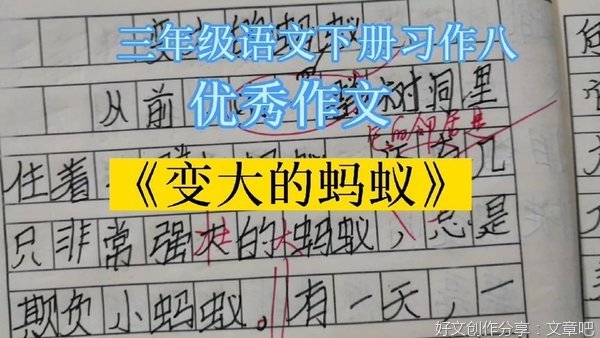 三年级语文下册习作八
优秀作文
《变大的蚂蚁》
从前
树洞里
住着
几
只非常强壮的大蚂蚁，总是
欺负小蚂蚁。有一天，一
好文创作分享：文章吧